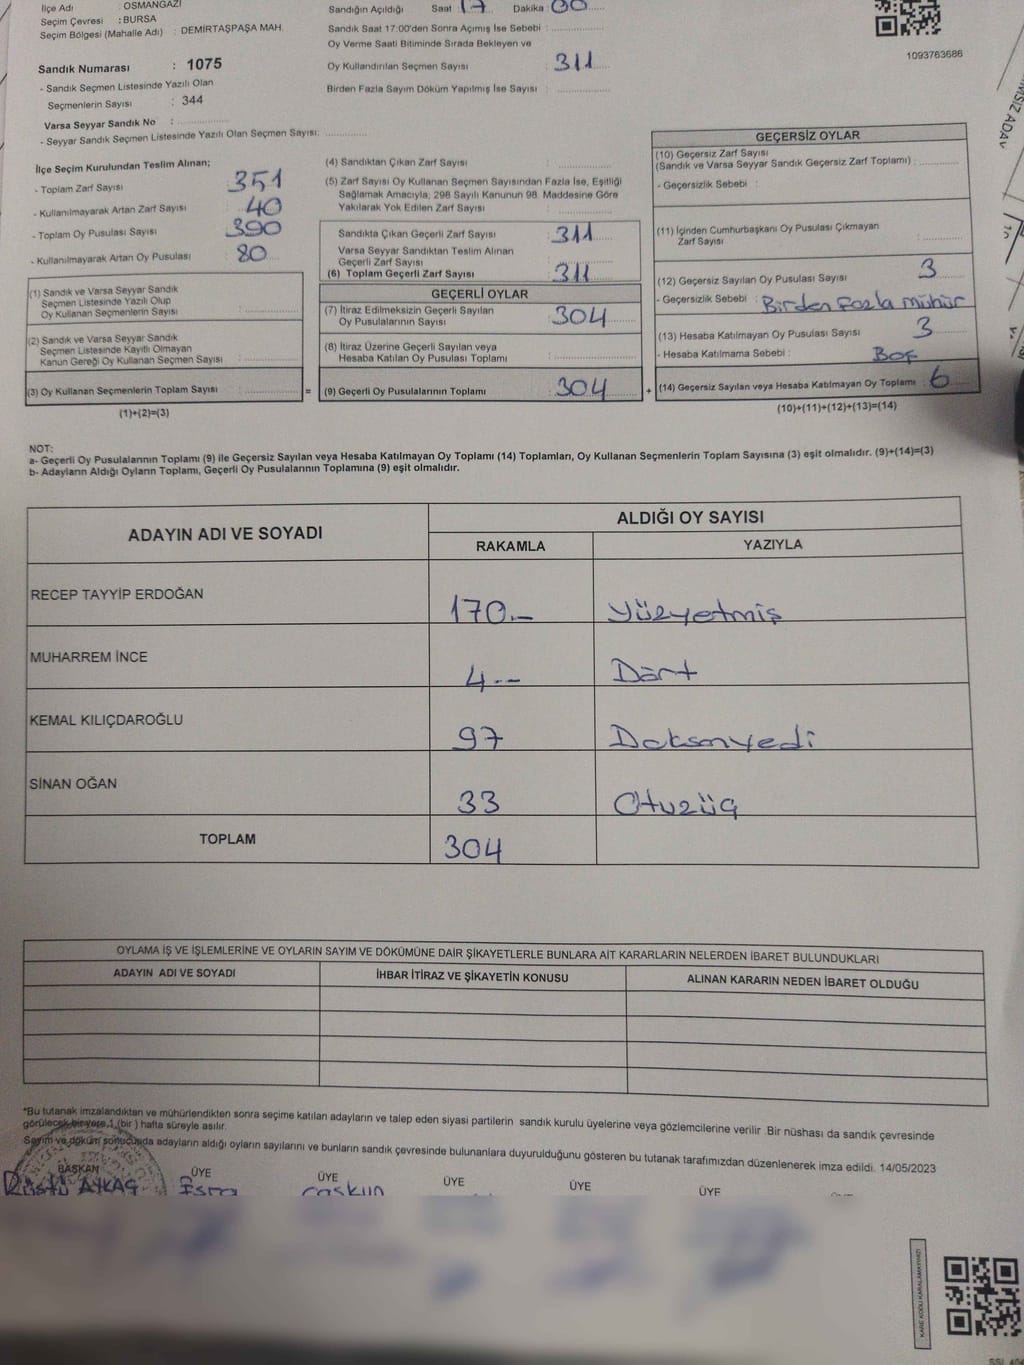 İlçe Adı : OSMANGAZİ
Seçim Çevresi : BURSA
Seçim Bölgesi (Mahalle Adı) : DEMİRTAŞPAŞA MAH.
Sandık Numarası : 1075
- Sandık Seçmen Listesinde Yazılı Olan
Seçmenlerin Sayısı : 344
Varsa Seyyar Sandık No :
- Seyyar Sandık Seçmen Listesinde Yazılı Olan Seçmen Sayısı:
Sandığın Açıldığı Saat 17 Dakika 00
Sandık Saat 17:00'den Sonra Açımış İse Sebebi :
Oy Verme Saati Bitiminde Sırada Bekleyen ve
Oy Kullandırılan Seçmen Sayısı : 311
Birden Fazla Sayım Döküm Yapılmış İse Sayısı :
1093763686
İlçe Seçim Kurulundan Teslim Alınan;
- Toplam Zarf Sayısı : 351
- Kullanılmayarak Artan Zarf Sayısı : 40
- Toplam Oy Pusulası Sayısı : 390
- Kullanılmayarak Artan Oy Pusulası : 80
(1) Sandık ve Varsa Seyyar Sandık
Seçmen Listesinde Yazılı Olup
Oy Kullanan Seçmenlerin Sayısı :
(2) Sandık ve Varsa Seyyar Sandık
Seçmen Listesinde Kayıtlı Olmayan
Kanun Gereği Oy Kullanan Seçmen Sayısı :
(3) Oy Kullanan Seçmenlerin Toplam Sayısı : =
(1)+(2)=(3)
(4) Sandıktan Çıkan Zarf Sayısı :
(5) Zarf Sayısı Oy Kullanan Seçmen Sayısından Fazla İse, Eşitliği
Sağlamak Amacıyla; 298 Sayılı Kanunun 98. Maddesine Göre
Yakılarak Yok Edilen Zarf Sayısı :
Sandıkta Çıkan Geçerli Zarf Sayısı : 311
Varsa Seyyar Sandıktan Teslim Alınan
Geçerli Zarf Sayısı :
(6) Toplam Geçerli Zarf Sayısı : 311
GEÇERLİ OYLAR
(7) İtiraz Edilmeksizin Geçerli Sayılan
Oy Pusulalarının Sayısı : 304
(8) İtiraz Üzerine Geçerli Sayılan veya
Hesaba Katılan Oy Pusulası Toplamı :
(9) Geçerli Oy Pusulalarının Toplamı : 304 +
GEÇERSİZ OYLAR
(10) Geçersiz Zarf Sayısı
(Sandık ve Varsa Seyyar Sandık Geçersiz Zarf Toplamı) :
- Geçersizlik Sebebi :
(11) İçinden Cumhurbaşkanı Oy Pusulası Çıkmayan
Zarf Sayısı :
(12) Geçersiz Sayılan Oy Pusulası Sayısı : 3
- Geçersizlik Sebebi : Birden Fazla mühür
(13) Hesaba Katılmayan Oy Pusulası Sayısı : 3
- Hesaba Katılmama Sebebi : Boş
(14) Geçersiz Sayılan veya Hesaba Katılmayan Oy Toplamı : 6
(10)+(11)+(12)+(13)=(14)
NOT:
a- Geçerli Oy Pusulalarının Toplamı (9) ile Geçersiz Sayılan veya Hesaba Katılmayan Oy Toplamı (14) Toplamları, Oy Kullanan Seçmenlerin Toplam Sayısına (3) eşit olmalıdır. (9)+(14)=(3)
b- Adayların Aldığı Oyların Toplamı, Geçerli Oy Pusulalarının Toplamına (9) eşit olmalıdır.
ADAYIN ADI VE SOYADI
ALDIĞI OY SAYISI
RAKAMLA YAZIYLA
RECEP TAYYİP ERDOĞAN 170.- Yüzyetmiş
MUHARREM İNCE 4-- Dört
KEMAL KILIÇDAROĞLU 97 Doksanyedi
SİNAN OĞAN 33 Otuzüç
TOPLAM 304
OYLAMA İŞ VE İŞLEMLERİNE VE OYLARIN SAYIM VE DÖKÜMÜNE DAİR ŞİKAYETLERLE BUNLARA AİT KARARLARIN NELERDEN İBARET BULUNDUKLARI
ADAYIN ADI VE SOYADI İHBAR İTİRAZ VE ŞİKAYETİN KONUSU ALINAN KARARIN NEDEN İBARET OLDUĞU
*Bu tutanak imzalandıktan ve mühürlendikten sonra seçime katılan adayların ve talep eden siyasi partilerin sandık kurulu üyelerine veya gözlemcilerine verilir .Bir nüshası da sandık çevresinde
görülecek bir yere 1 (bir ) hafta süreyle asılır.
Sayım ve döküm sonucunda adayların aldığı oyların sayılarını ve bunların sandık çevresinde bulunanlara duyurulduğunu gösteren bu tutanak tarafımızdan düzenlenerek imza edildi. 14/05/2023
BAŞKAN ÜYE ÜYE ÜYE ÜYE ÜYE
Rüştü AYKAÇ Esra
KARE KODU KARALAMAYINIZ!